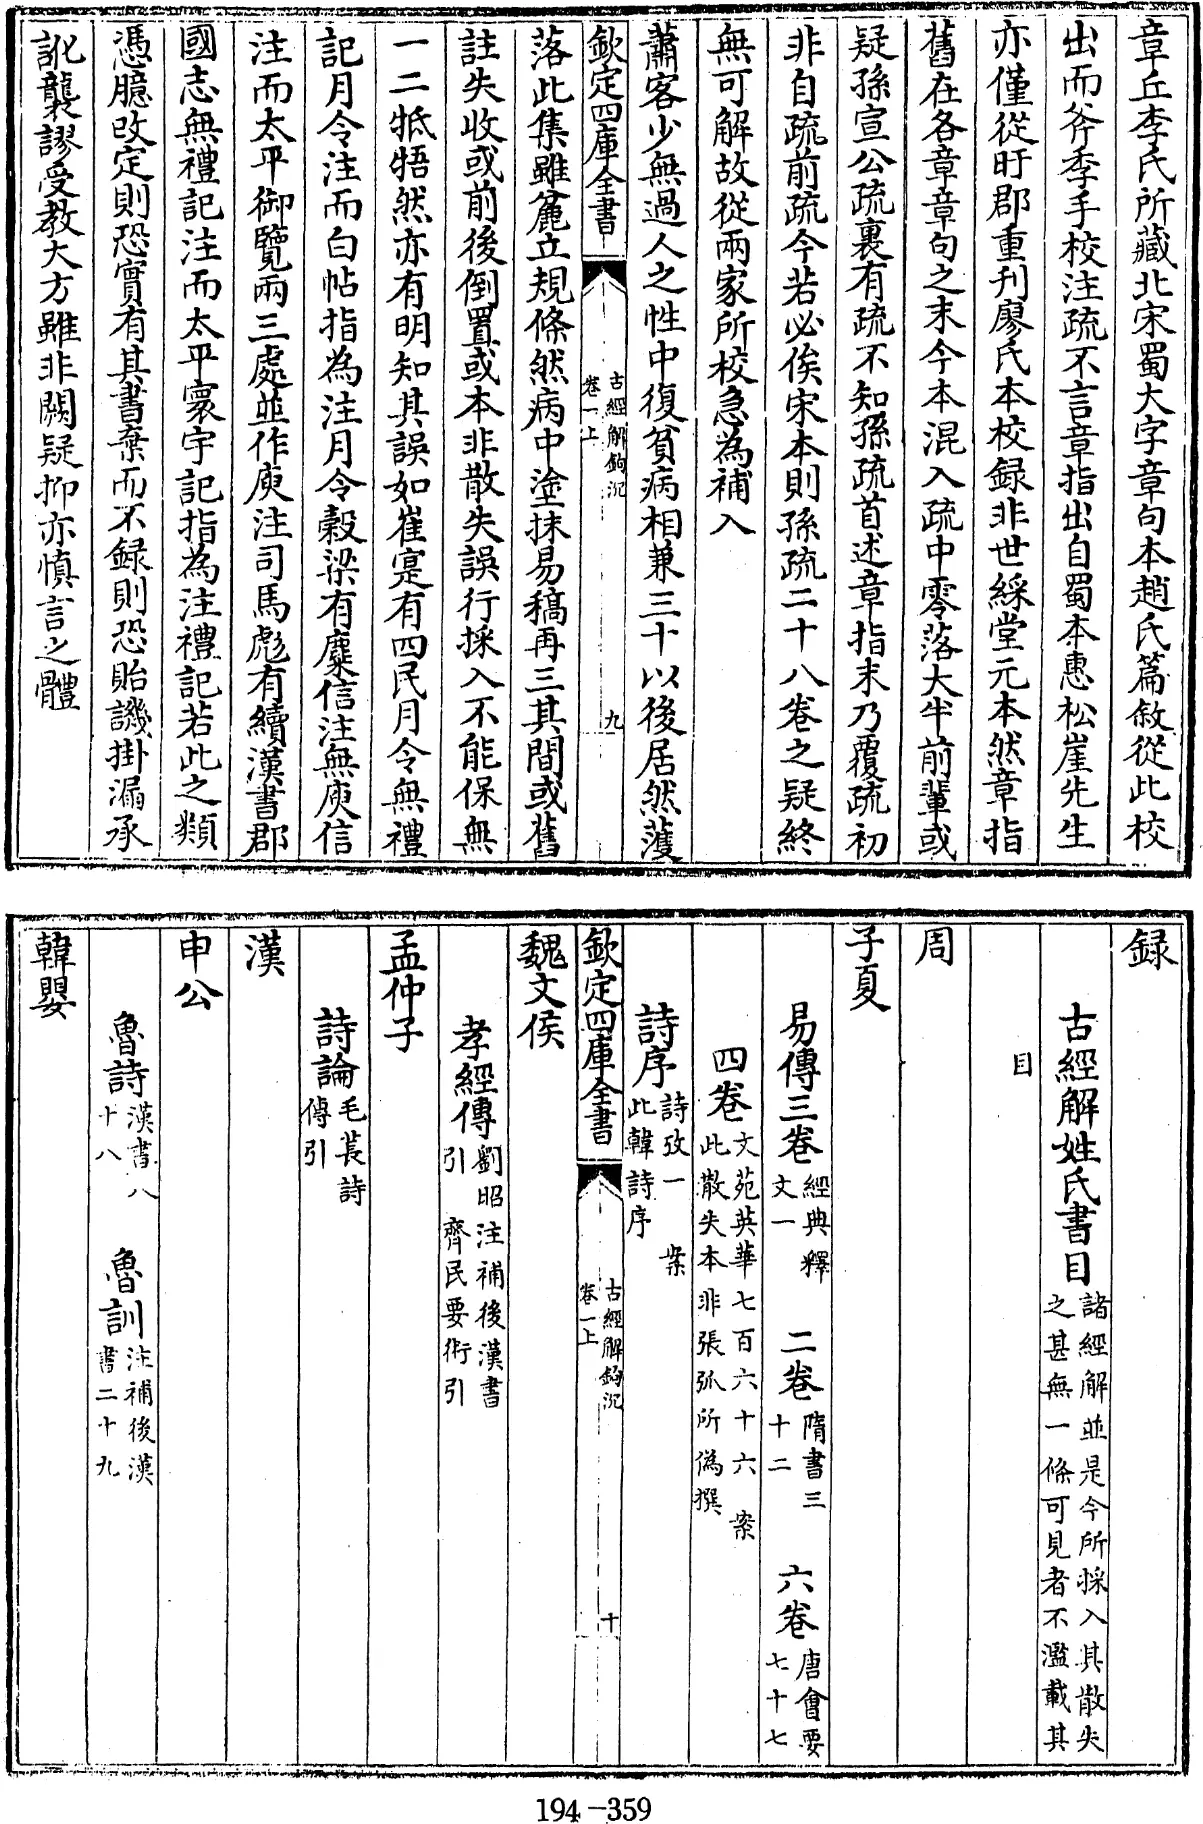 章丘李氏所藏北宋蜀大字章句本趙氏篇敘從此校
出而斧季手校注疏不言章指出自蜀本惠松崖先生
亦僅從盱郡重刋廖氏本校録非世綵堂元本然章指
舊在各章章句之末今本混入疏中零落大半前輩或
疑孫宣公疏裏有疏不知孫疏首述章指末乃覆疏初
非自疏前疏今若必俟宋本則孫疏二十八卷之疑終
無可解故從兩家所校急為補入
蕭客少無過人之性中復貧病相兼三十以後居然蒦
欽定四庫全書
古經解鉤沉
卷一上
九
落此集雖麄立規條然病中塗抹易稿再三其間或舊
註失收或前後倒置或本非散失誤行採入不能保無
一二牴牾然亦有明知其誤如崔寔有四民月令無禮
記月令注而白帖指為注月令穀梁有麋信注無庾信
注而太平御覽兩三處並作庾注司馬彪有續漢書郡
國志無禮記注而太平寰宇記指為注禮記若此之類
憑臆改定則恐實有其書棄而不録則恐貽譏掛漏承
訛襲謬受教大方雖非闕疑抑亦慎言之體
録
古經解姓氏書目
諸經解並是今所採入其散失
之甚無一條可見者不濫載其
目
周
子夏
易傳三卷
經典釋
文一
二卷
隋書三
十二
六卷
唐會要
七十七
四卷
文苑英華七百六十六 案
此散失本非張弧所偽撰
詩序
詩攷一 案
此韓詩序
欽定四庫全書
古經解鉤沉
卷一上
十
魏文侯
孝經傳
劉昭注補後漢書
引 齊民要術引
孟仲子
詩論
毛萇詩
傳引
漢
申公
魯詩
漢書八
十八
魯訓
注補後漢
書二十九
韓嬰
194-359